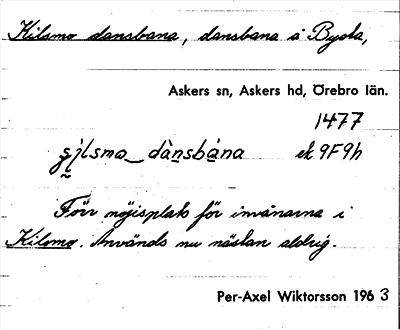 Kilsmo dansbana, dansbana å Bysta,
Askers sn, Askers hd, Örebro län.
1477
ek 9F9h
Förr nöjesplats för invånarna i
Kilsmo. Används nu nästan aldrig.
Per-Axel Wiktorsson 1963